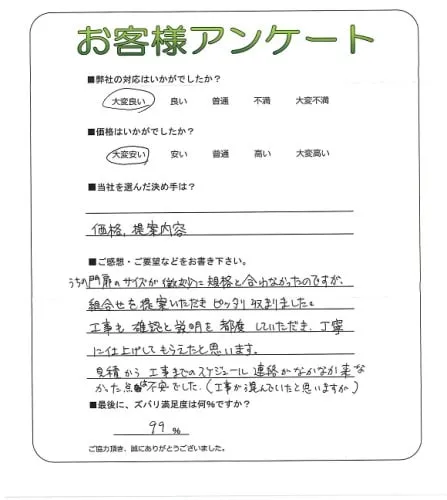 お客様アンケート
■弊社の対応はいかがでしたか？
大変良い 良い 普通 不満 大変不満
■価格はいかがでしたか？
大変安い 安い 普通 高い 大変高い
■当社を選んだ決め手は？
価格, 提案内容
■ご感想・ご要望などをお書き下さい。
うちの門扉のサイズが微妙に規格と合わなかったのですが、
組合せを提案いただきピッタリ収まりました。
工事も確認と説明を都度していただき、丁寧
に仕上げてもらえたと思います。
見積から工事までのスケジュール連絡がなかなか来な
かった点は不安でした。(工事から混んでいたと思いますが)
■最後に、ズバリ満足度は何%ですか？
99 %
ご協力頂き、誠にありがとうございました。